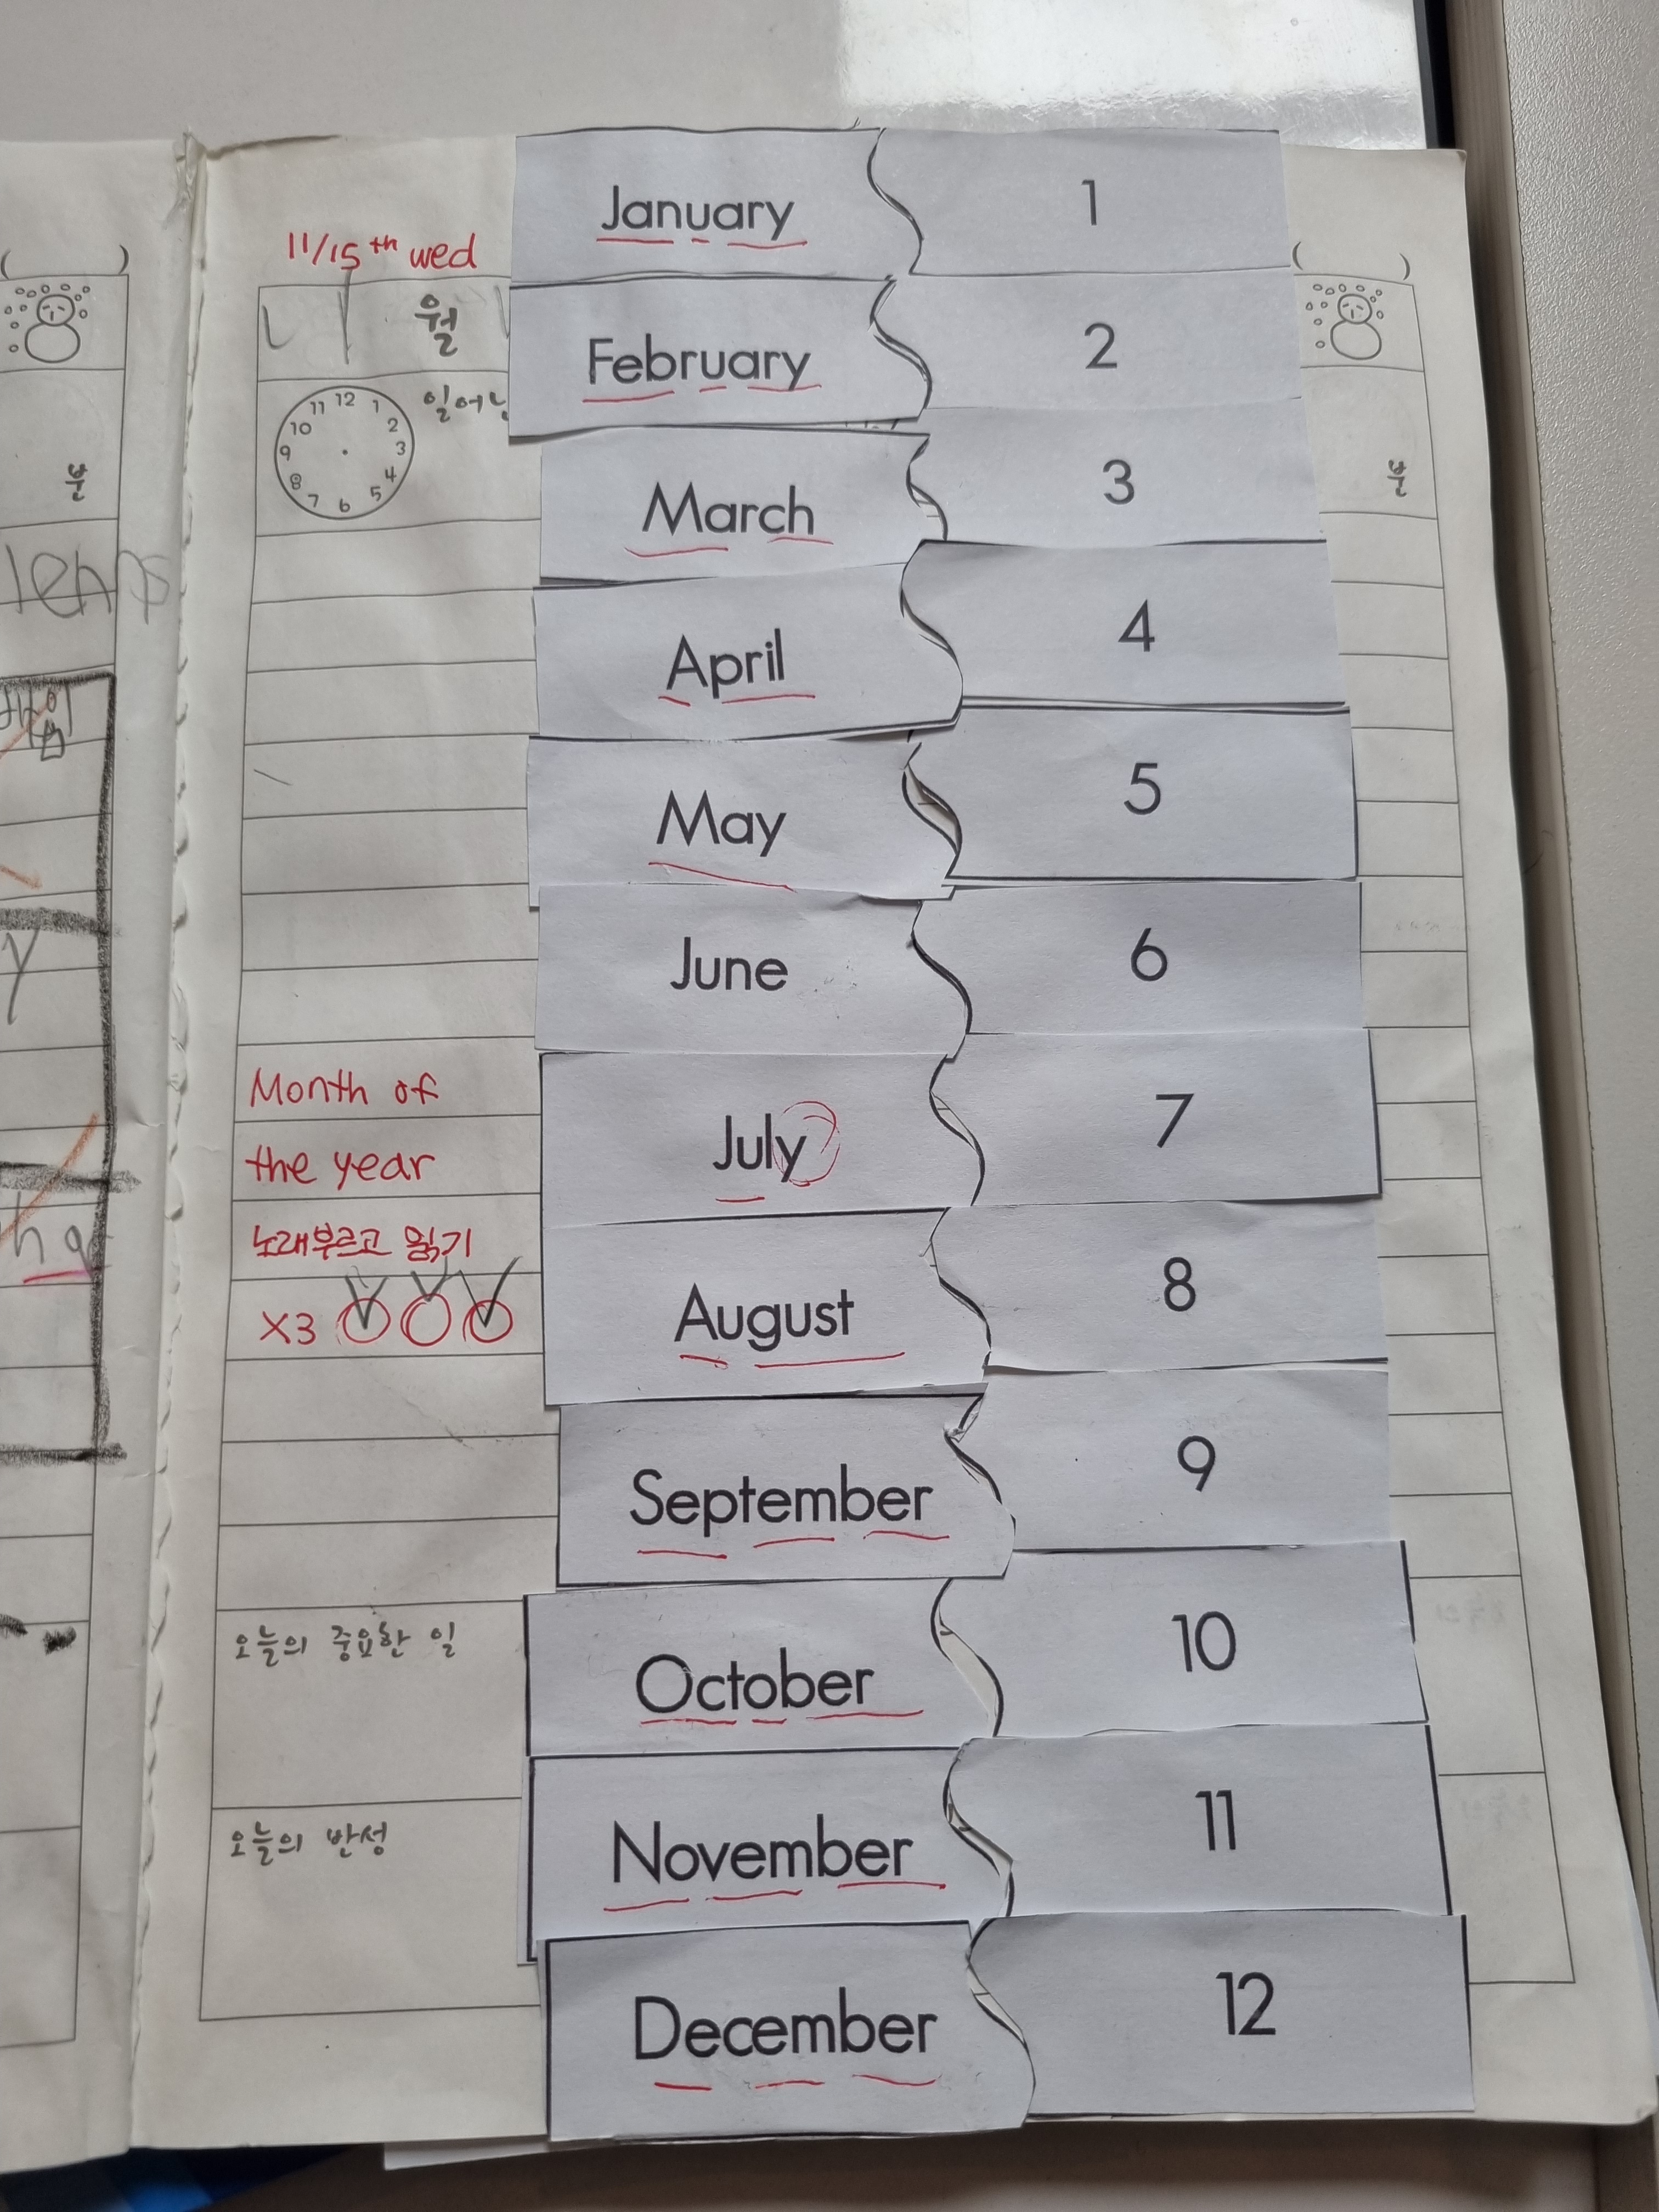 11/15th wed
월
일어
12
11
1
10
2
9
3
8
4
7
5
6
January 1
February 2
March 3
April 4
May 5
June 6
July 7
August 8
September 9
October 10
November 11
December 12
Month of
the year
노래부르고 읽기
X3
오늘의 중요한 일
오늘의 반성
( )
분
( )
분